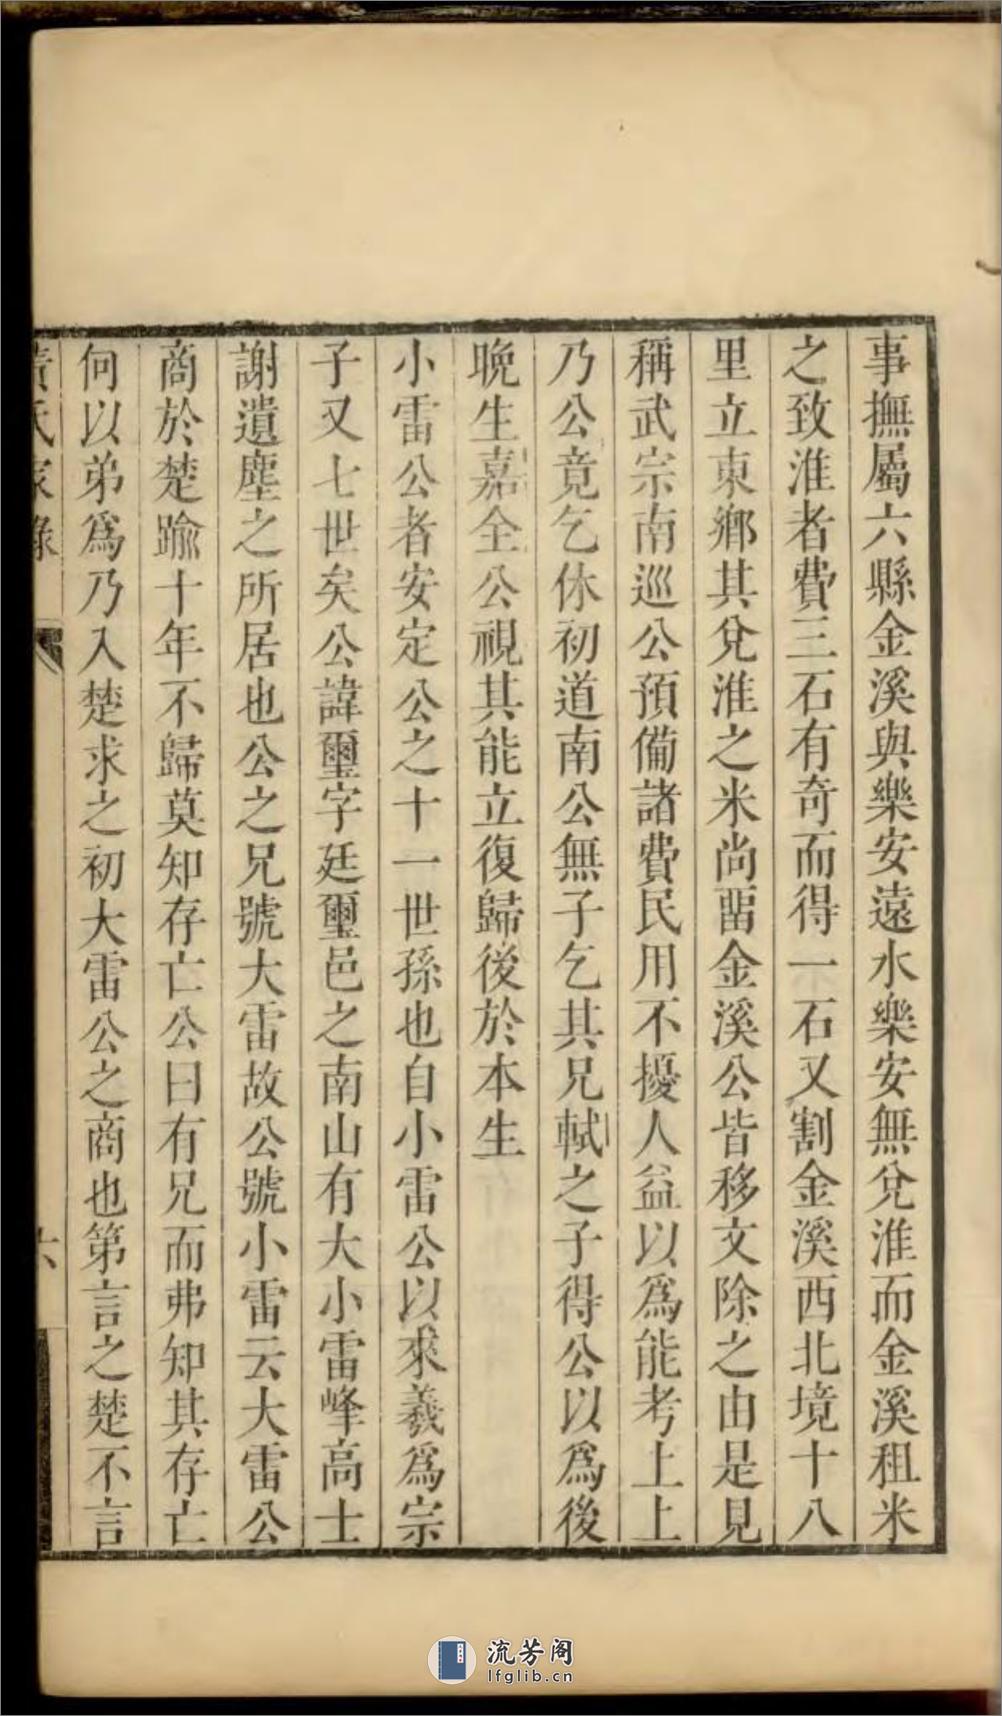 事撫屬六縣金溪與樂安遠水樂安無兌淮而金溪租米
之致淮者費三石有奇而得一石又割金溪西北境十八
里立東鄉其兌淮之米尚畱金溪公皆移文除之由是見
稱武宗南巡公預備諸費民用不擾人益以為能考上上
乃公竟乞休初道南公無子乞其兄軾之子得公以為後
晩生嘉全公視其能立復歸後於本生
小雷公者安定公之十一世孫也自小雷公以求義為宗
子又七世矣公諱璽字廷璽邑之南山有大小雷峰高士
謝遺塵之所居也公之兄號大雷故公號小雷云大雷公
商於楚踰十年不歸莫知存亡公曰有兄而弗知其存亡
何以弟爲乃入楚求之初大雷公之商也第言之楚不言
黃氏家錄
六
流芳阁
lfglib.cn